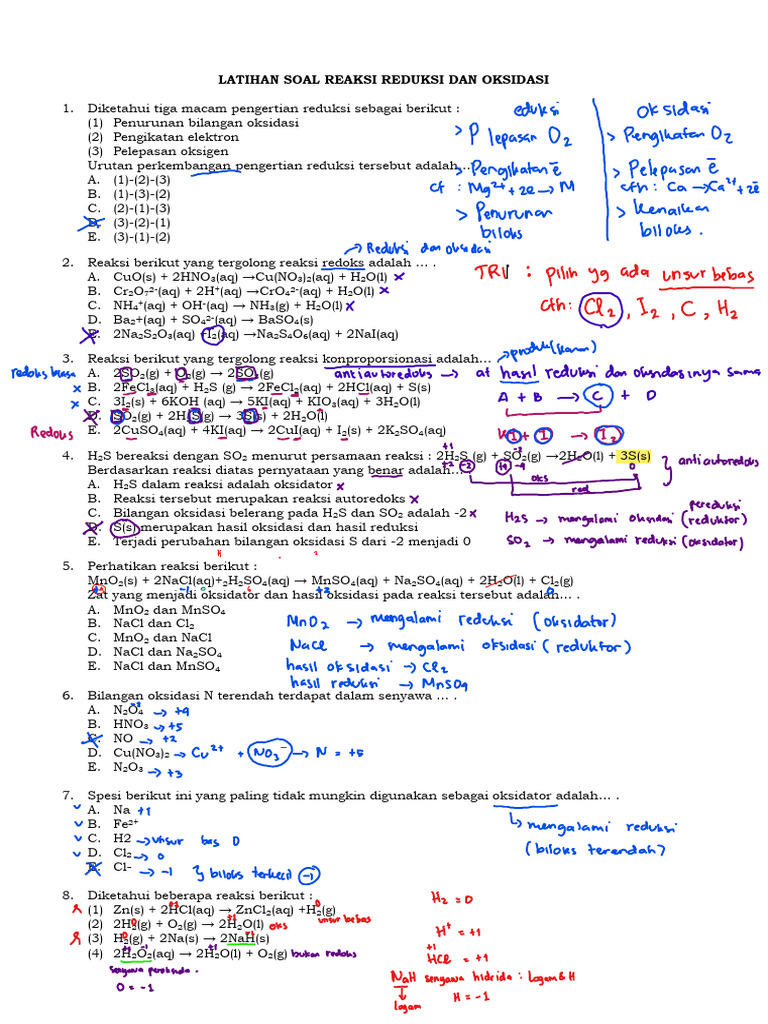 LATIHAN SOAL REAKSI REDUKSI DAN OKSIDASI
1. Diketahui tiga macam pengertian reduksi sebagai berikut :
(1) Penurunan bilangan oksidasi
(2) Pengikatan elektron
(3) Pelepasan oksigen
Urutan perkembangan pengertian reduksi tersebut adalah....
A. (1)-(2)-(3)
B. (1)-(3)-(2)
C. (2)-(1)-(3)
D. (3)-(2)-(1)
E. (3)-(1)-(2)
eduksi
> P lepasan O₂
> Pengikatan ē
cf : Mg²⁺ + 2e → M
> Penurunan
biloks
oksidasi
> Pengikatan O₂
> Pelepasan ē
cth : Ca → Ca²⁺ + 2ē
> Kenaikan
biloks.
→ Reduksi dan oksidasi
2. Reaksi berikut yang tergolong reaksi redoks adalah ... .
A. CuO(s) + 2HNO₃(aq) →Cu(NO₃)₂(aq) + H₂O(l) x
B. Cr₂O₇²⁻(aq) + 2H⁺(aq) →CrO₄²⁻(aq) + H₂O(l) x
C. NH₄⁺(aq) + OH⁻(aq) → NH₃(g) + H₂O(l) x
D. Ba₂+(aq) + SO₄²⁻(aq) → BaSO₄(s)
E. 2Na₂S₂O₃(aq) +I₂(aq) →Na₂S₄O₆(aq) + 2NaI(aq)
TRI : pilih yg ada unsur bebas
Cth: Cl₂, I₂, C, H₂
3. Reaksi berikut yang tergolong reaksi konproporsionasi adalah...
redoks biasa A. 2SO₂(g) + O₂(g) → 2SO₃(g)
x B. 2FeCl₃(aq) + H₂S (g) → 2FeCl₂(aq) + 2HCl(aq) + S(s)
x C. 3I₂(s) + 6KOH (aq) → 5KI(aq) + KIO₃(aq) + 3H₂O(l)
D. SO₂(g) + 2H₂S(g) → 3S(s) + 2H₂O(l)
Redoks E. 2CuSO₄(aq) + 4KI(aq) → 2CuI(aq) + I₂(s) + 2K₂SO₄(aq)
antiautoredoks → at hasil reduksi dan oksidasinya sama
A + B → C + D
+ I → I₂
4. H₂S bereaksi dengan SO₂ menurut persamaan reaksi : 2H₂S (g) + SO₂(g) →2H₂O(l) + 3S(s)
Berdasarkan reaksi diatas pernyataan yang benar adalah...
A. H₂S dalam reaksi adalah oksidator x
B. Reaksi tersebut merupakan reaksi autoredoks x
C. Bilangan oksidasi belerang pada H₂S dan SO₂ adalah -2 x
D. S(s) merupakan hasil oksidasi dan hasil reduksi
E. Terjadi perubahan bilangan oksidasi S dari -2 menjadi 0
+1
+2 -2 +4 -4 0
oks
red
} antiautoredoks
pereduksi
H₂S → mengalami oksidasi (reduktor)
SO₂ → mengalami reduksi (oksidator)
5. Perhatikan reaksi berikut :
MnO₂(s) + 2NaCl(aq)+₂H₂SO₄(aq) → MnSO₄(aq) + Na₂SO₄(aq) + 2H₂O(l) + Cl₂(g)
+4 -1 0 6 +2 0
Zat yang menjadi oksidator dan hasil oksidasi pada reaksi tersebut adalah... .
A. MnO₂ dan MnSO₄
B. NaCl dan Cl₂
C. MnO₂ dan NaCl
D. NaCl dan Na₂SO₄
E. NaCl dan MnSO₄
MnO₂ → mengalami reduksi (oksidator)
NaCl → mengalami oksidasi (reduktor)
hasil oksidasi → Cl₂
hasil reduksi → MnSO₄
6. Bilangan oksidasi N terendah terdapat dalam senyawa ... .
A. N₂O₄ → +4
B. HNO₃ → +5
C. NO → +2
D. Cu(NO₃)₂ → Cu²⁺ + NO₃⁻ → N = +5
E. N₂O₃ → +3
7. Spesi berikut ini yang paling tidak mungkin digunakan sebagai oksidator adalah... .
A. Na +1
B. Fe²⁺
C. H2 → unsur bas 0
D. Cl₂ → 0
E. Cl- → -1 } biloks terkecil -1
↳ mengalami reduksi
(biloks terendah)
8. Diketahui beberapa reaksi berikut :
(1) Zn(s) + 2HCl(aq) → ZnCl₂(aq) +H₂(g)
(2) 2H₂(g) + O₂(g) → 2H₂O(l) oks
unsur bebas
(3) H₂(g) + 2Na(s) → 2NaH(s)
(4) 2H₂O₂(aq) → 2H₂O(l) + O₂(g) bukan redoks
senyawa peroksida.
O = -1
H₂ = 0
H⁺ = +1
+1
HCl = +1
NaH senyawa hidrida : logam & H
↓ logam H = -1